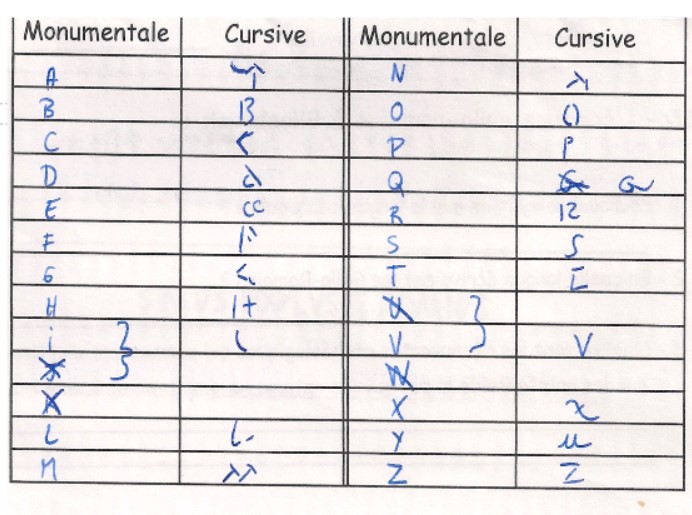 Monumentale Cursive Monumentale Cursive
A N λ
B B O O
C < P P
D Q G
E cc R 12
F S S
G T
H I+ U
i V V
J W
K X x
L Y u
M λλ Z Z